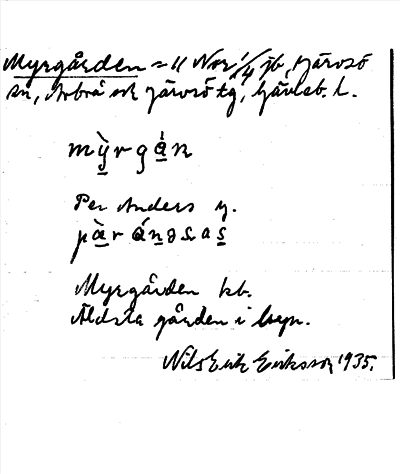 Myrgården = 11 Nor 1/4 jb, Järvsö
sn, Arbrå och Järvsö tg, Gävleb. l.
mỳ̲rgá̲n
Per Anders g.
pà̲r án̲dʂas̲
Myrgården kb.
Äldsta gården i byn.
Nils Erik Eriksson 1935.